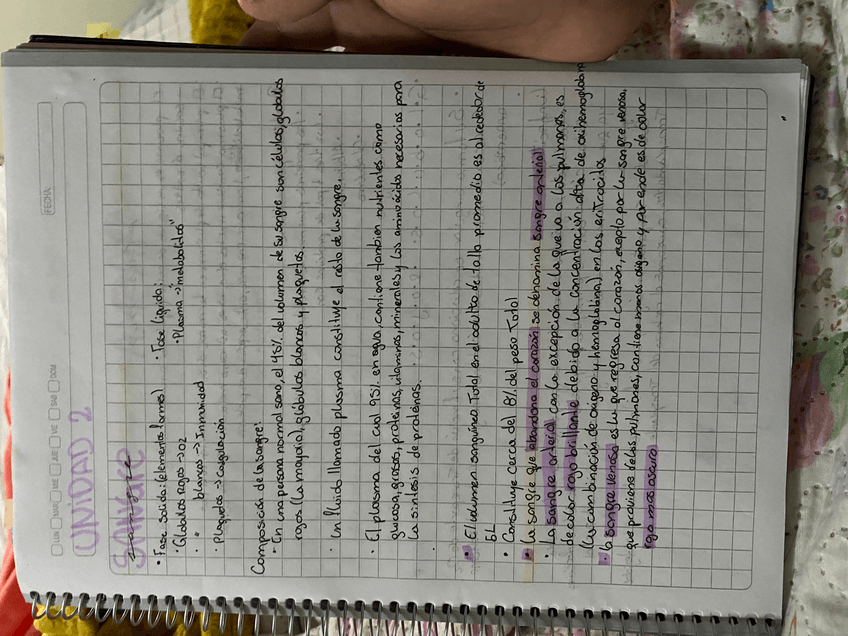 FECHA
LUN MAR MIE JUE VIE SAB DOM
UNIDAD 2
SANGRE
Sangre
• Fase solida: (elementos formes)
• Fase liquida:
• Globulos rojos -> O2
• Plasma -> metabolitos"
• " blancos -> Inmunidad
• Plaquetas -> coagulación
Composición de la sangre:
• En una persona normal sana, el 45% del volumen de su sangre son células, globulos
rojos (la mayoría), glóbulos blancos y plaquetas.
• Un fluido llamado plasma constituye el resto de la sangre.
• El plasma del cual 95% en agua, contiene también nutrientes como
glucosa, grasas, proteinas, vitaminas, minerales y los aminoácidos necesarios para
la sintesis de proteinas.
• El volumen sanguineo Total en el adulto de talla promedio es al rededor de
5L
• Constituye cerca del 8% del peso Total
• la sangre que abandona el corazón se denomina sangre arterial
• La sangre arterial con la excepción de la que va a los pulmones, es
de color rojo brillante debido a la concentración alta de oxihemoglobina
(la combinación de oxigeno y hemoglobina) en los eritrocitos
• la sangre venosa es la que regresa al corazón, exepto por la sangre venosa,
que proviene de los pulmones, contiene menos oxigeno y por ende es de color
rojo mas oscuro